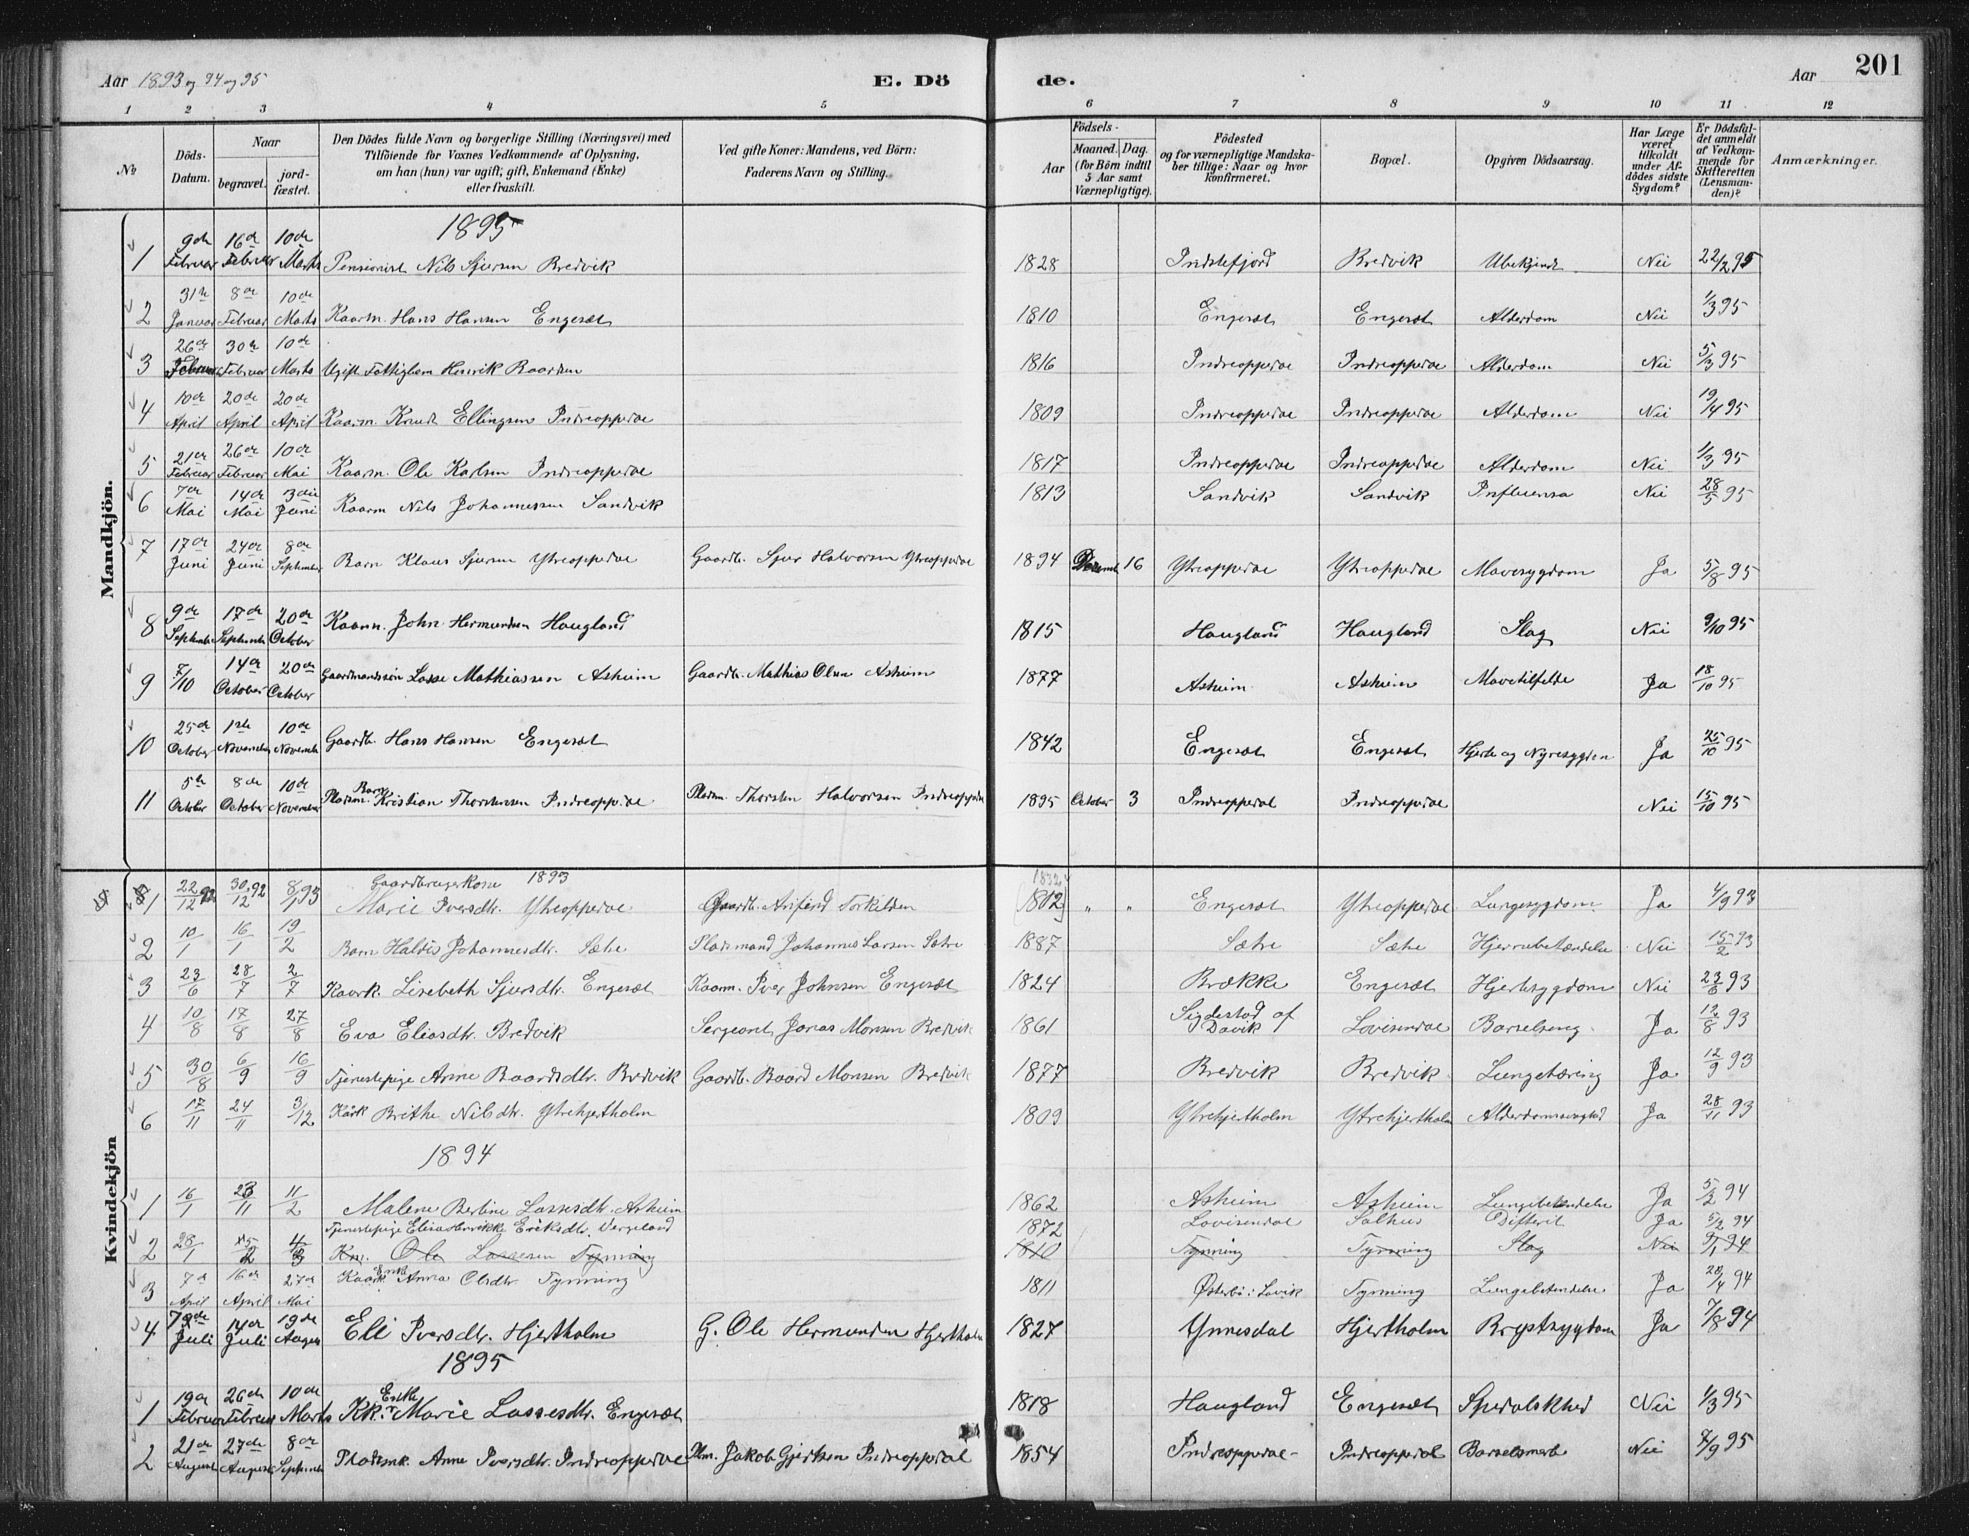 Aar 1893 og 94 og 95 E. Dö de. Aar 201
1 2 3 4 5 6 7 8 9 10 11 12
No Döds-Datum. Naar begravet. jordfæstet. Den Dödes fulde Navn og borgerlige Stilling (Næringsvei) med Tilföiende for Voxnes Vedkommende af Oplysning, om han (hun) var ugift, gift, Enkemand (Enke) eller fraskilt. Ved gifte Koner: Mandens, ved Börn: Faderens Navn og Stilling. Födsels- Aar Maaned. Dag. (for Börn indtil 5 Aar samt Værnepligtige). Födested og for værnepligtige Mandskaber tillige: Naar og hvor konfirmeret. Bopæl. Opgiven Dödsaarsag. Har Læge været tilkaldt under Afdödes sidste Sygdom? Er Dödsfaldet anmeldt af Vedkommende for Skifteretten (Lensmanden)? Anmærkninger.
Mandkjön.
1895
1 9de Februar 16de Februar 10de Marts Pensionist Nils Sjursen Bredvik 1828 Indrefjord Bredvik Ubekjendt Nei 22/2 95
2 31te Januar 8de Februar 10de Marts Kaarm. Hans Hansen Engesæt 1810 Engesæt Engesæt Alderdom Nei 1/3 95
3 26de Februar 30te Februar 10de Marts Ugift Fattiglem Henrik Baardsen 1816 Indreoppedal Indreoppedal Alderdom Nei 5/3 95
4 10de April 20de April 20de April Kaarm. Knud Ellingsen Indreoppedal 1809 Indreoppedal Indreoppedal Alderdom Nei 19/4 95
5 21de Februar 26de Februar 10de Mai Kaarm. Ole Karlsen Indreoppedal 1817 Indreoppedal Indreoppedal Alderdom Nei 1/3 95
6 7de Mai 14de Mai 3die Juni Kaarm Nils Johannessen Sandvik 1813 Sandvik Sandvik Influensa Nei 28/5 95
7 17de Juni 24de Juni 8de September Barn Klaus Sjursen Ytreoppedal Gaardb. Sjur Halvorsen Ytreoppedal 1894 Decemb 16 Ytreoppedal Ytreoppedal Mavesygdom Ja 5/8 95
8 9de September 17de September 20de October Kaarm. John Hermundsen Haugland 1815 Haugland Haugland Slag Nei 9/10 95
9 7/10 14de October 20de October Gaardmandssön Lasse Mathiassen Asheim Gaardb. Mathias Olsen Asheim 1877 Asheim Asheim Mavetilfelde Ja 18/10 95
10 25de October 1ste November 10de November Gaardb. Hans Hansen Engesæt 1842 Engesæt Engesæt Hjerte og Nyresygdom Ja 25/10 95
11 5te October 8de October 10de November Pladsm. Barn Kristian Thorstensen Indreoppedal Pladsm. Thorsten Halvorsen Indreoppedal 1895 October 3 Indreoppedal Indreoppedal Nei 15/10 95
Kvindekjön
1893
1 22/12 92 30/12 92 8/1 93 Gaardbrugerkone Marie Iversdtr. Ytreoppedal Gaardb. Arnfind Torkildsen 1832 (1812) " " Engesæt Ytreoppedal Lungesygdom Ja 4/3 93
2 10/1 16/1 19/2 Barn Haldis Johannesdtr. Sætre Pladsmand Johannes Larsen Sætre 1887 Sætre Sætre Hjernebetændelse Nei 15/2 93
3 23/6 28/7 2/7 Kaark. Lisebeth Sjursdtr. Engesæt Kaarm. Iver Johnsen Engesæt 1824 Brække Engesæt Hjertesygdom Nei 23/6 93
4 10/8 17/8 27/8 Eva Eliasdtr. Bredvik Sergeant Jonas Monsen Bredvik 1861 Sigdestad af Davik Lovisendal Barselseng Ja 12/8 93
5 30/8 6/9 16/9 Tjenestepige Anne Baardsdtr. Bredvik Gaardb. Baard Monsen Bredvik 1877 Bredvik Bredvik Lungetæring Ja 12/9 93
6 17/11 24/11 3/12 Kårk Brithe Nilsdtr. Ytrehjertholm 1809 Ytrehjertholm Ytrehjertholm Alderdomssvaghed Ja 28/11 93
1894
1 16/1 23/11 11/2 Malene Berline Lassesdtr. Asheim 1862 Asheim Asheim Lungebetændelse Ja 5/2 94
Tjenestepige Elias Henrikke Eriksdtr. Vergeland 1872 Lovisendal Salhus Difterit Ja 5/2 94
2 28/1 2 4/3 Ka. Ole Lassesen Tynning 1810 Tynning Tynning Slag Nei 9/1 94
3 7de April 16de April 27de Mai Kaark Enke Anna Olsdtr Tynning 1811 Österbö i Lavik Tynning Lungebetændelse Ja 20/4 94
4 7de Juli 14de Juli 19de August Eli Iversdtr. Hjertholm G. Ole Hermundsen Hjertholm 1827 Ynnesdal Hjertholm Brystsygdom Ja 7/8 94
1895
1 19de Februar 26de Februar 10de Marts Kk. Enke Marie Lassesdtr. Engesæt 1818 Haugland Engesæt Spedalskhed Nei 1/3 95
2 21de August 27de August 8de September Pladsmk. Anne Iversdtr. Indreoppedal Plm. Jakob Gjertsen Indreoppedal 1854 Indreoppedal Indreoppedal Barselsmert Nei 2/9 95